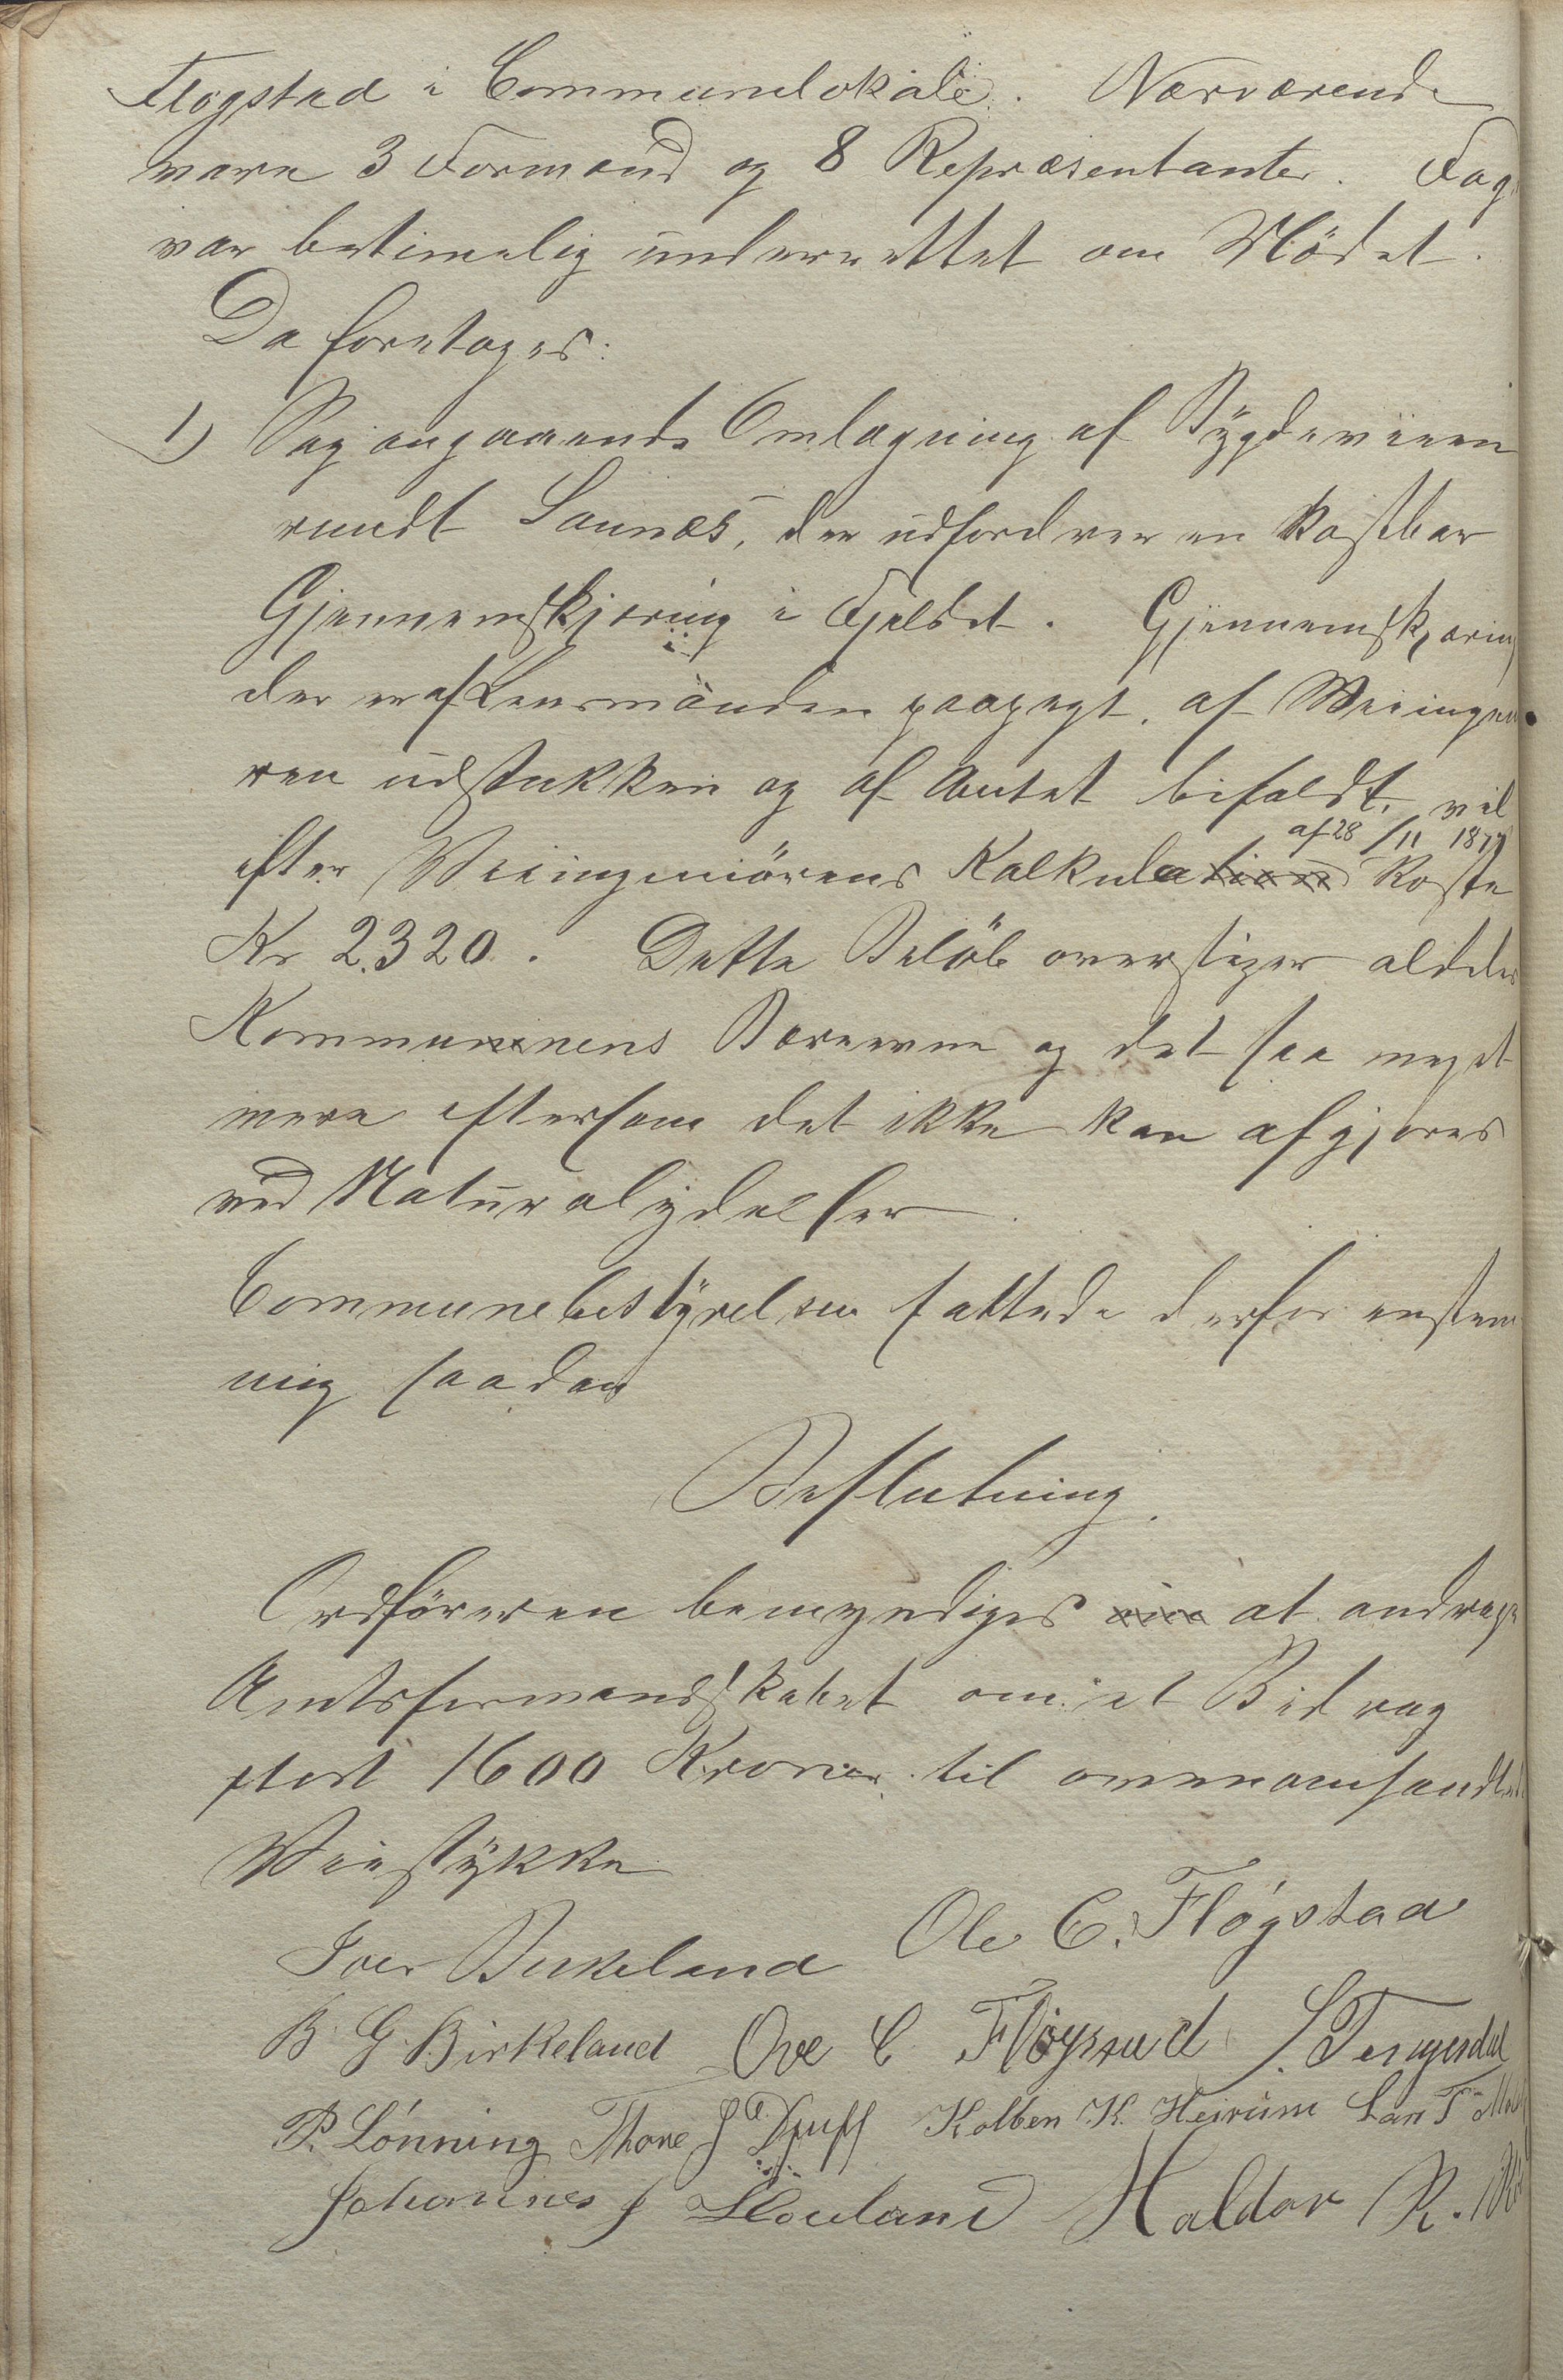 Flogstad i Communelokale. Nærværende
vare 3 Formænd og 8 Repræsentanter. Fog
var betimelig underrettet om Mödet.
Da foretoges:
1) Sag angaaende Omlægning af Bygdeveien
rundt Saunæs, der udfordrer en kostbar
Gjennemskjæring i Fjeldet. Gjennemskjæring
der er af Lensmanden paapegt, af Veiingen
ren udstukken og af Amtet bifaldt, vil
af 28/11 1877
efter Veiingeniörens Kalkula koste
Kr 2320. Dette Belöb overstiger aldeles
Kommunens Bæreevne og det saa meget
mere eftersom det ikke kan afgjøres
ved Naturalydelser.
Communebestyrelsen fattede derfor enstem
mig saadan
Beslutning.
Ordföreren bemyndiges at andrage
Amtsformandskabet om et Bidrag
stort 1600 Kroner til ovenomhandlede
Veistykke
Iver Birkeland Ole C. Fløgstad
B G Birkeland Ove C Fløgstad S. Tengesdal
P. Lønning Thore J Kolben K. Heirum Lars T
Johannes J Haldor R.